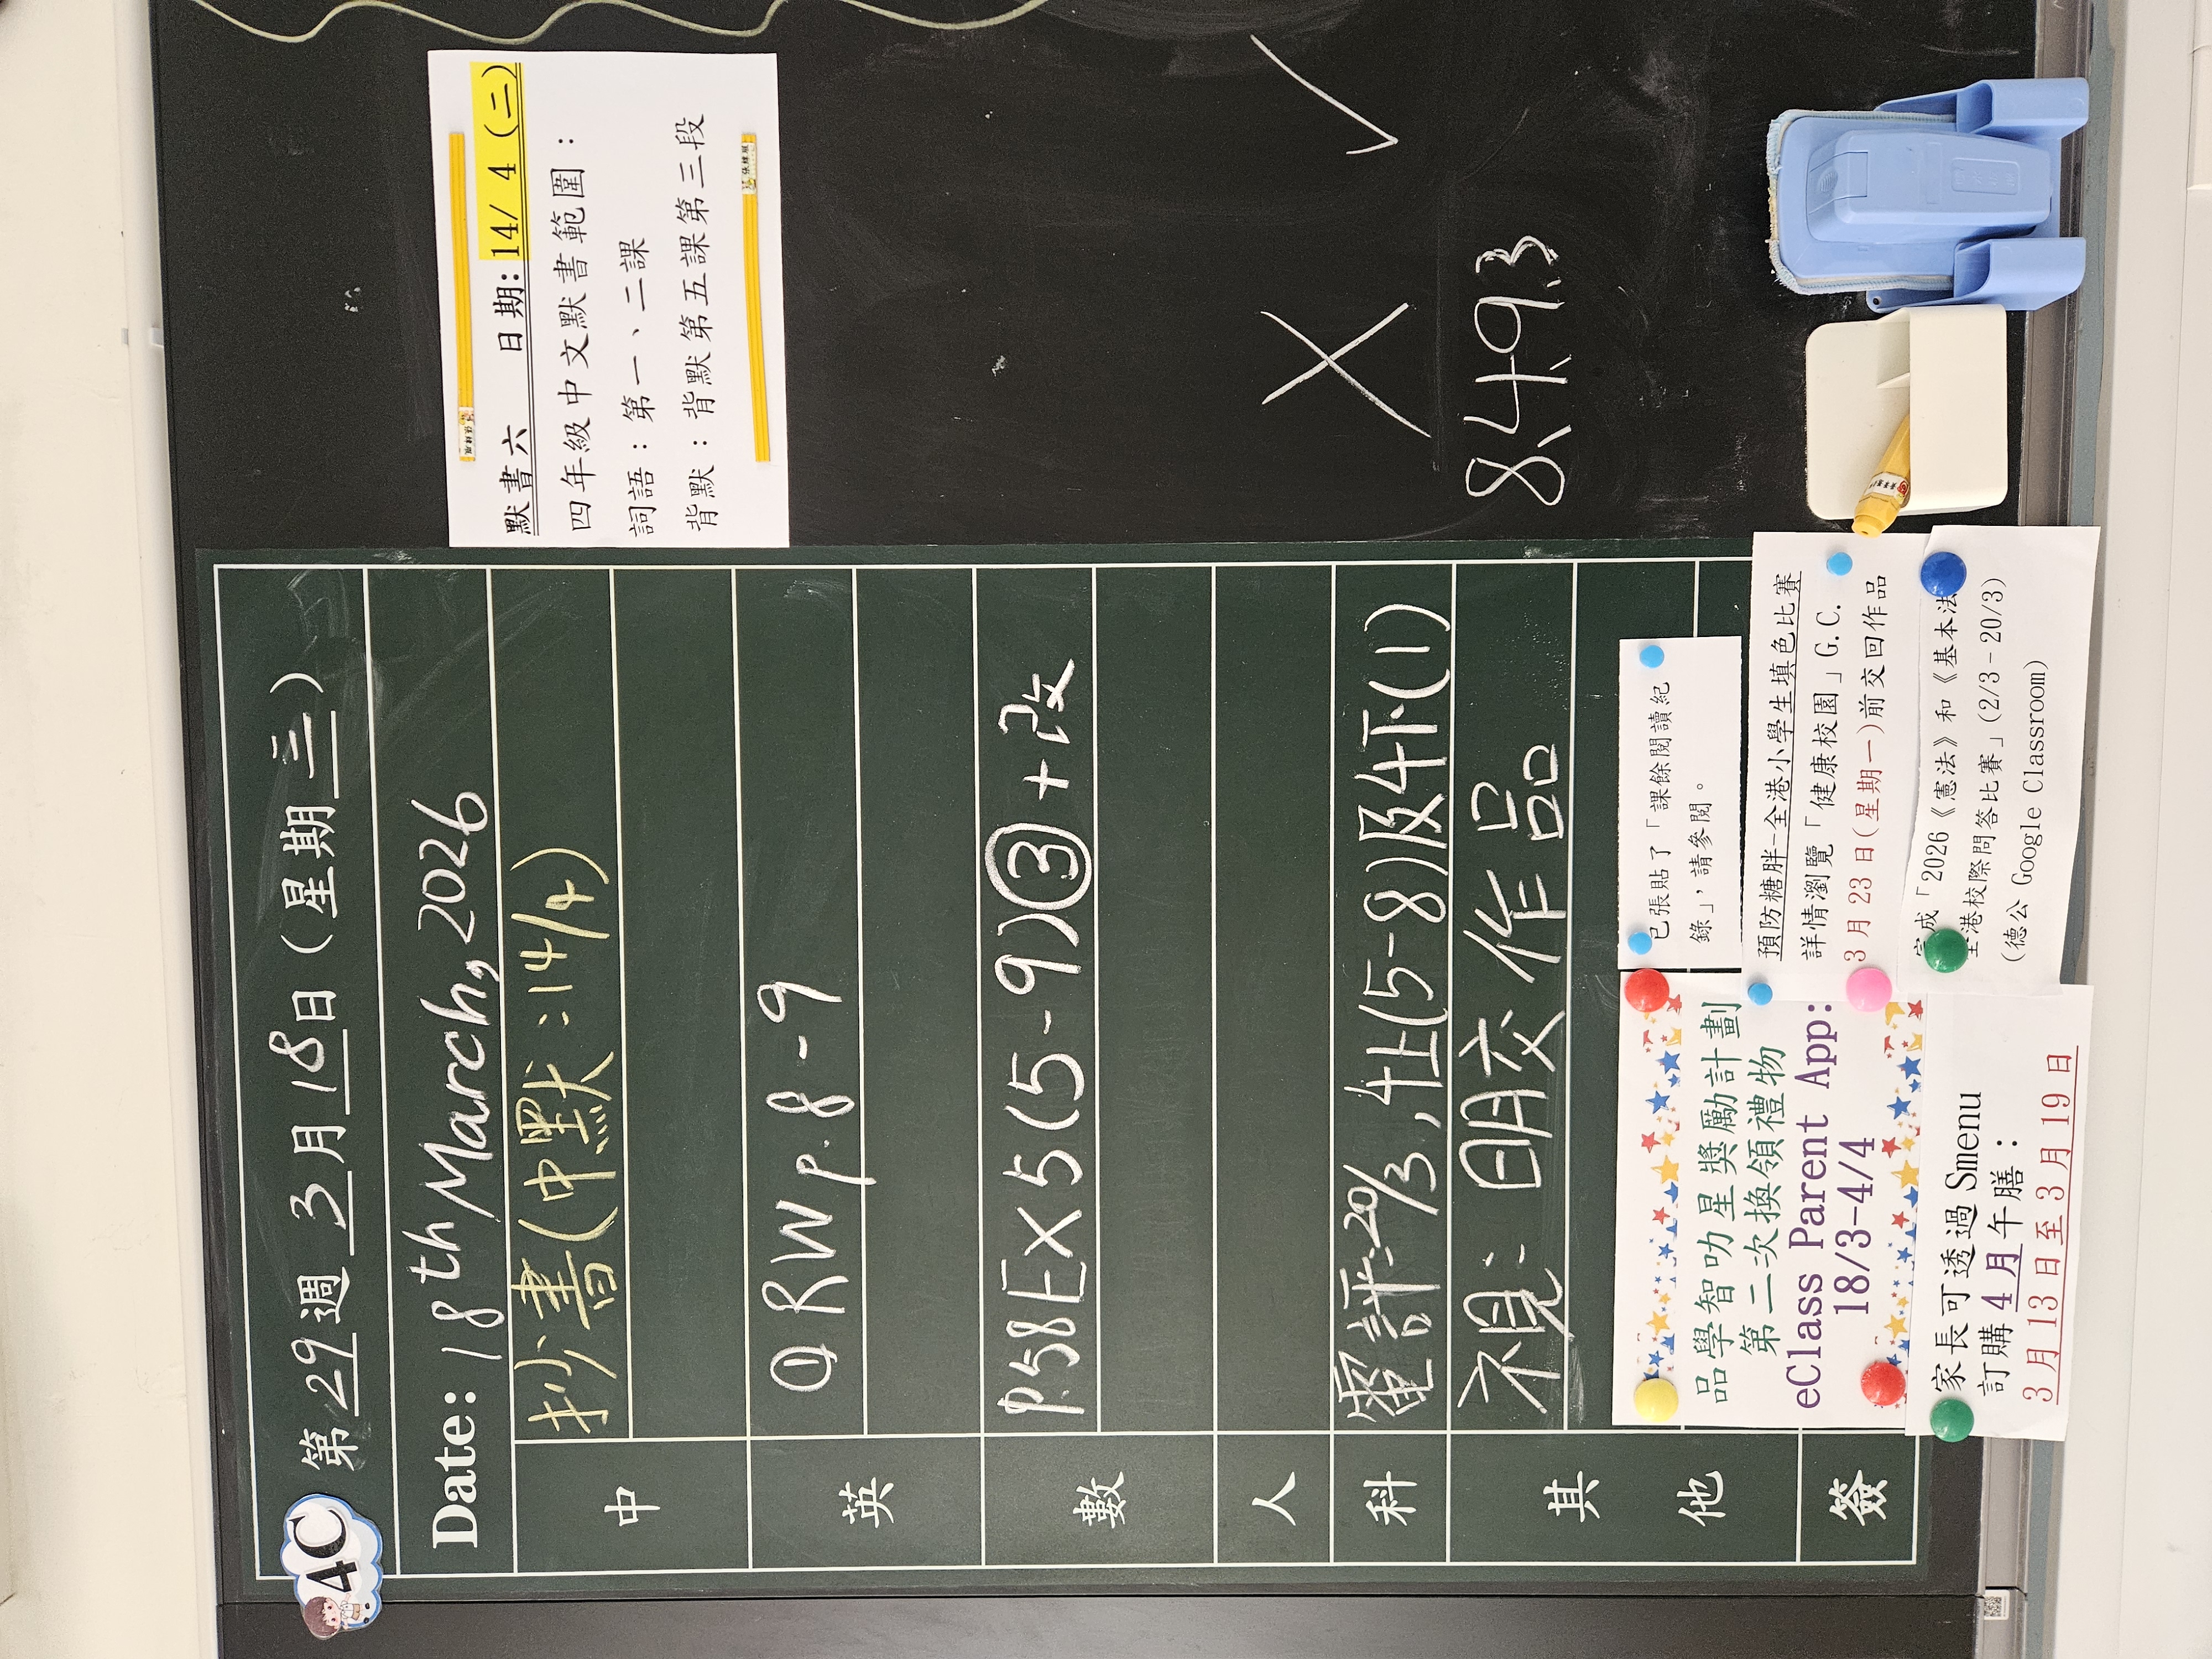 4C
第 29 週 3 月 18 日 ( 星 期 三 )
Date: 18th March, 2026
中
抄書(中默:14/4)
英
① RW p.8-9
數
P.58 EX 5 (5-9)③+改
人
科
評:20/3,4上(5-8)及4下(1)
其他
視:明交作品
簽
默書六 日期:14/ 4 (二)
四年級中文默書範圍:
詞語:第一、二課
背默:背默第五課第三段
X ✓
8,4,9,3
已張貼了「課餘閱讀紀
錄」,請參閱。
預防糖胖-全港小學生填色比賽
詳情瀏覽「健康校園」G.C.
3 月 23 日(星期一)前交回作品
完成「2026《憲法》和《基本法
全港校際問答比賽」(2/3-20/3)
(德公 Google Classroom)
品學智叻星獎勵計劃
第二次換領禮物
eClass Parent App:
18/3-4/4
家長可透過 Smenu
訂購 4 月午膳:
3 月 13 日至 3 月 19 日